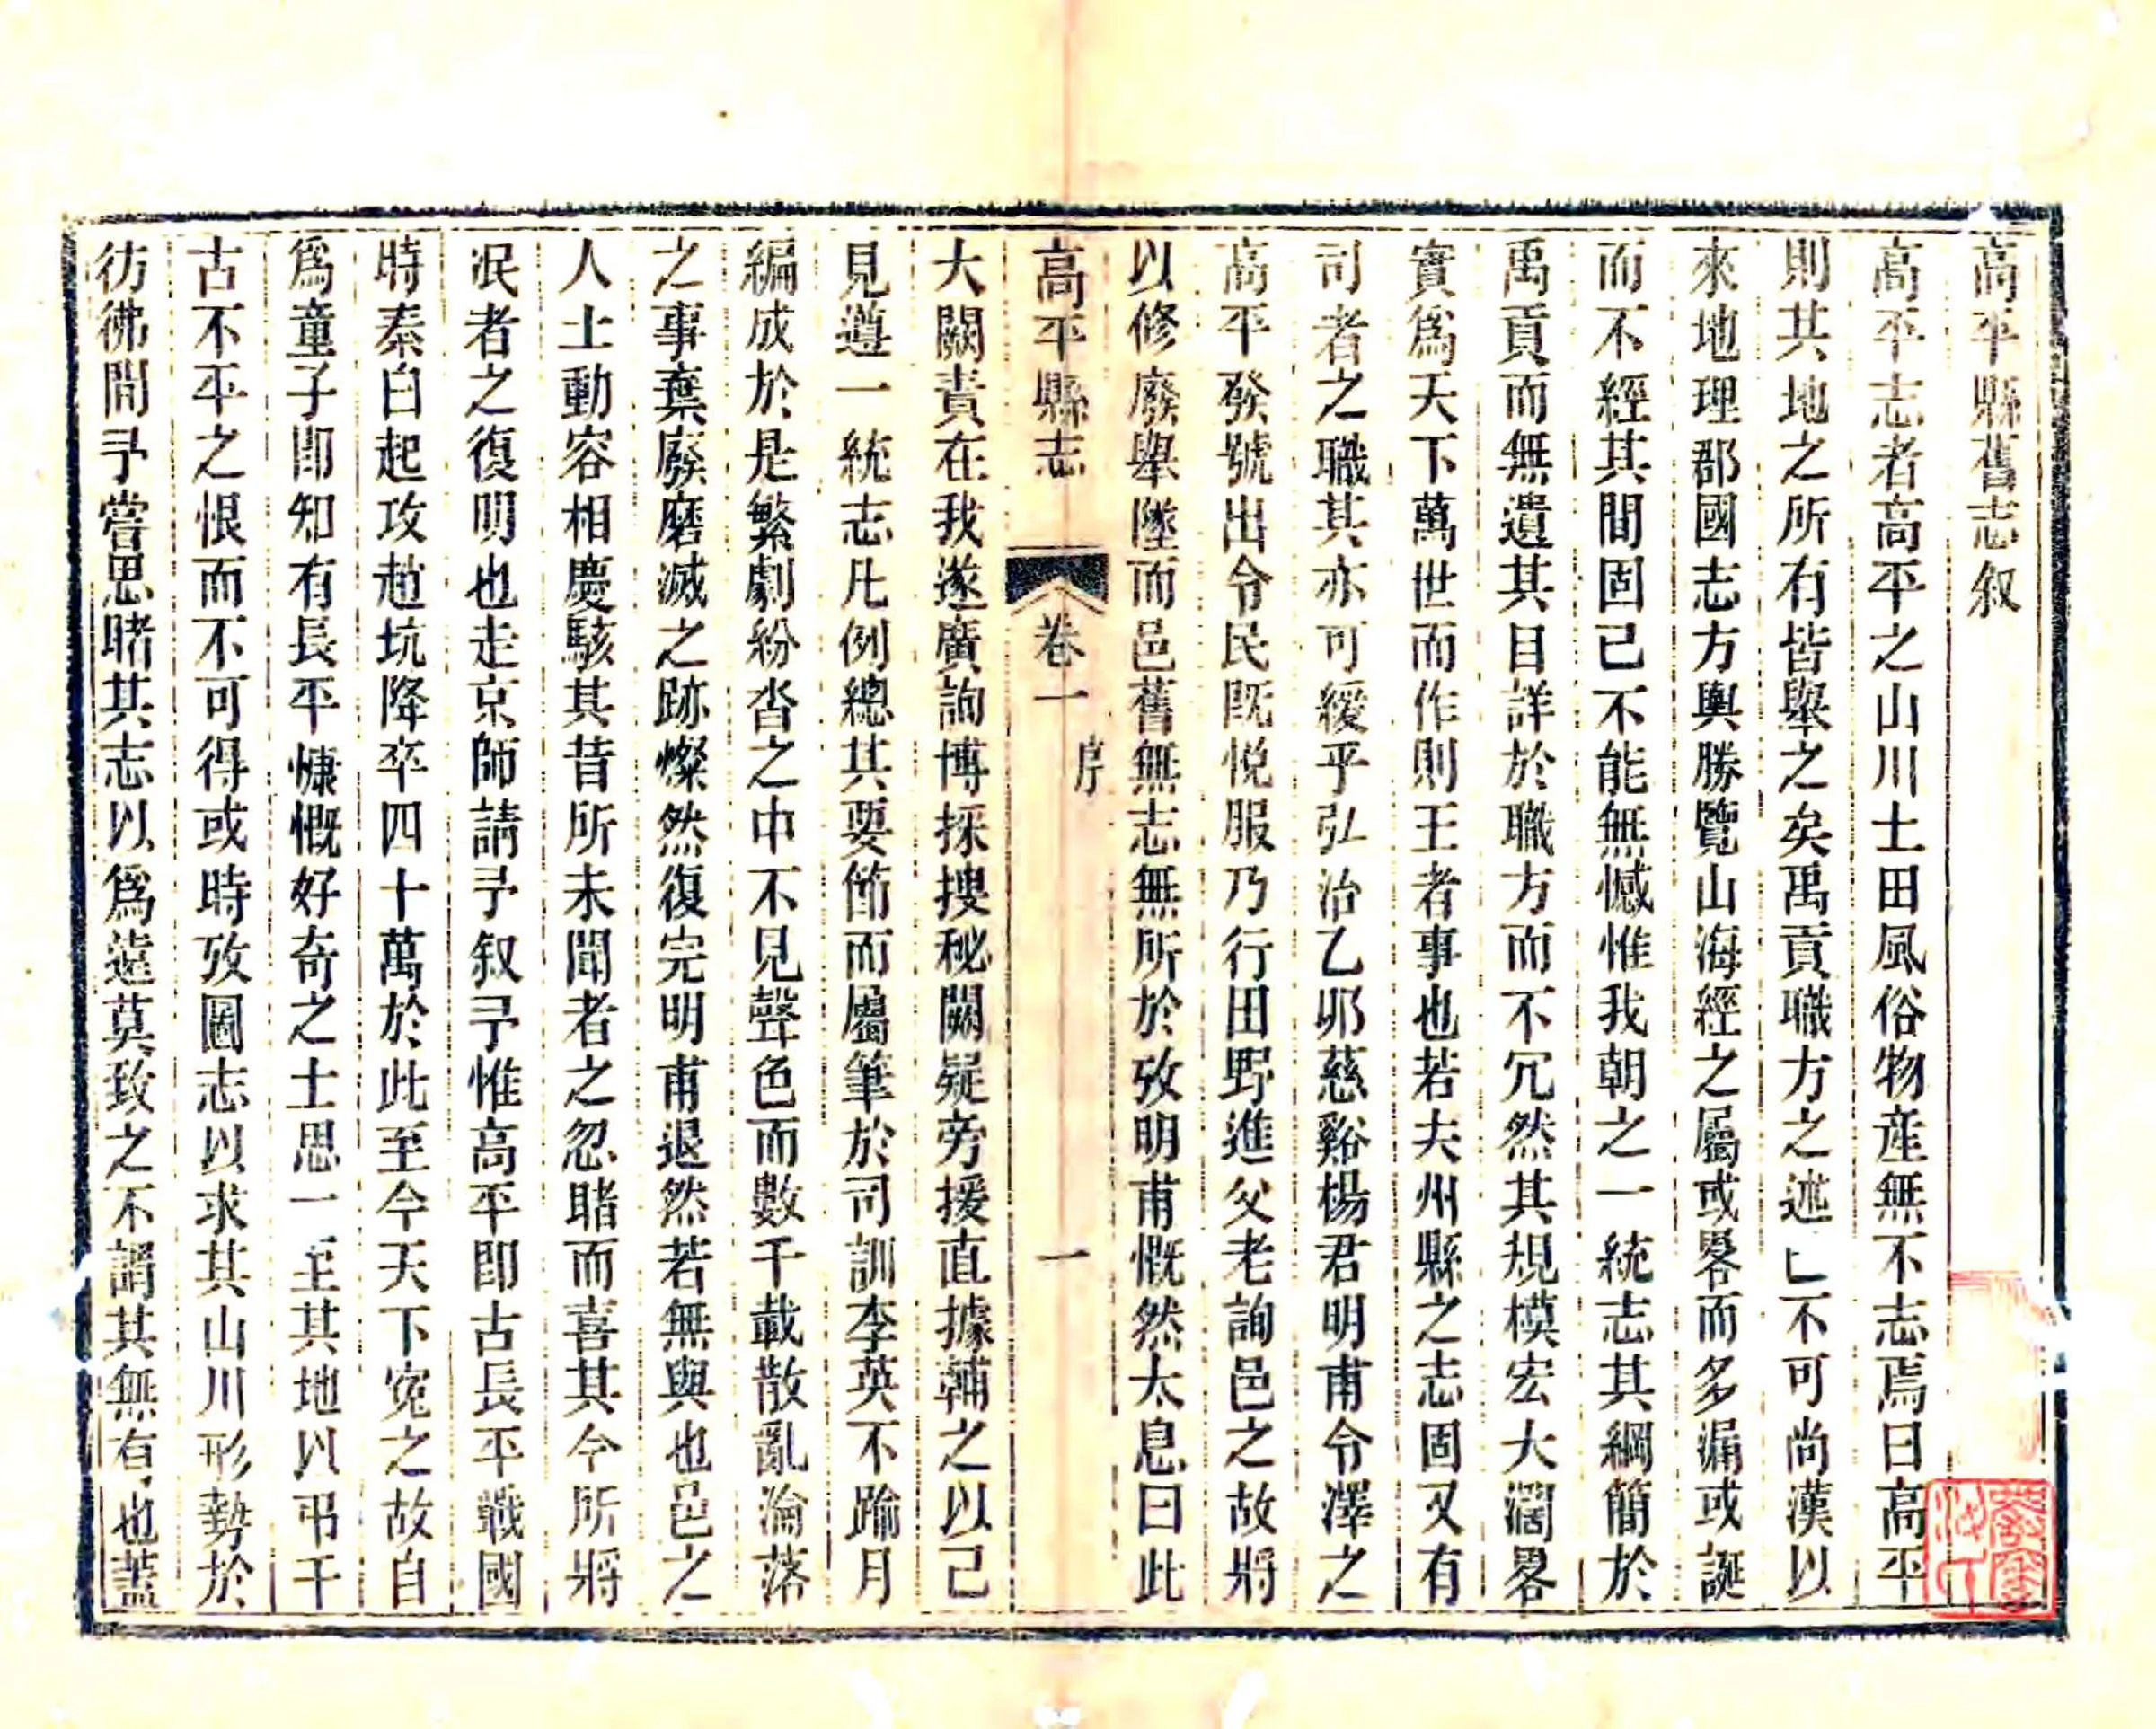 高平縣舊志叙
高平志者高平之山川土田風俗物産無不志焉曰高平
則其地之所有皆舉之矣禹貢職方之述不可尚漢以
來地理郡國志方輿勝覽山海經之屬或畧而多漏或誕
而不經其間固已不能無憾惟我朝之一統志其綱簡於
禹貢而無遺其目詳於職方而不冗然其規模宏大濶畧
實爲天下萬世而作則王者事也若夫州縣之志固又有
司者之職其亦可緩乎弘治乙夘慈谿楊君明甫令澤之
高平發號出令民既悅服乃行田野進父老詢邑之故將
以修廢舉墜而邑舊無志無所於攷明甫慨然太息曰此
高平縣志 卷一 序 一
大闕責在我遂廣詢博採搜秘闕疑旁援直據輔之以己
見遵一統志凡例總其要節而屬筆於司訓李英不踰月
編成於是繁劇紛沓之中不見聲色而數千載散亂淪落
之事棄廢磨滅之跡燦然復完明甫退然若無與也邑之
人士動容相慶駭其昔所未聞者之忽睹而喜其今所將
泯者之復明也走京師請予叙予惟高平即古長平戰國
時秦白起攻趙坑降卒四十萬於此至今天下寃之故自
爲童子即知有長平慷慨好奇之士思一至其地以弔千
古不平之恨而不可得或時攷圖志以求其山川形勢於
彷彿間予嘗思睹其志以爲遠莫致之不謂其無有也蓋